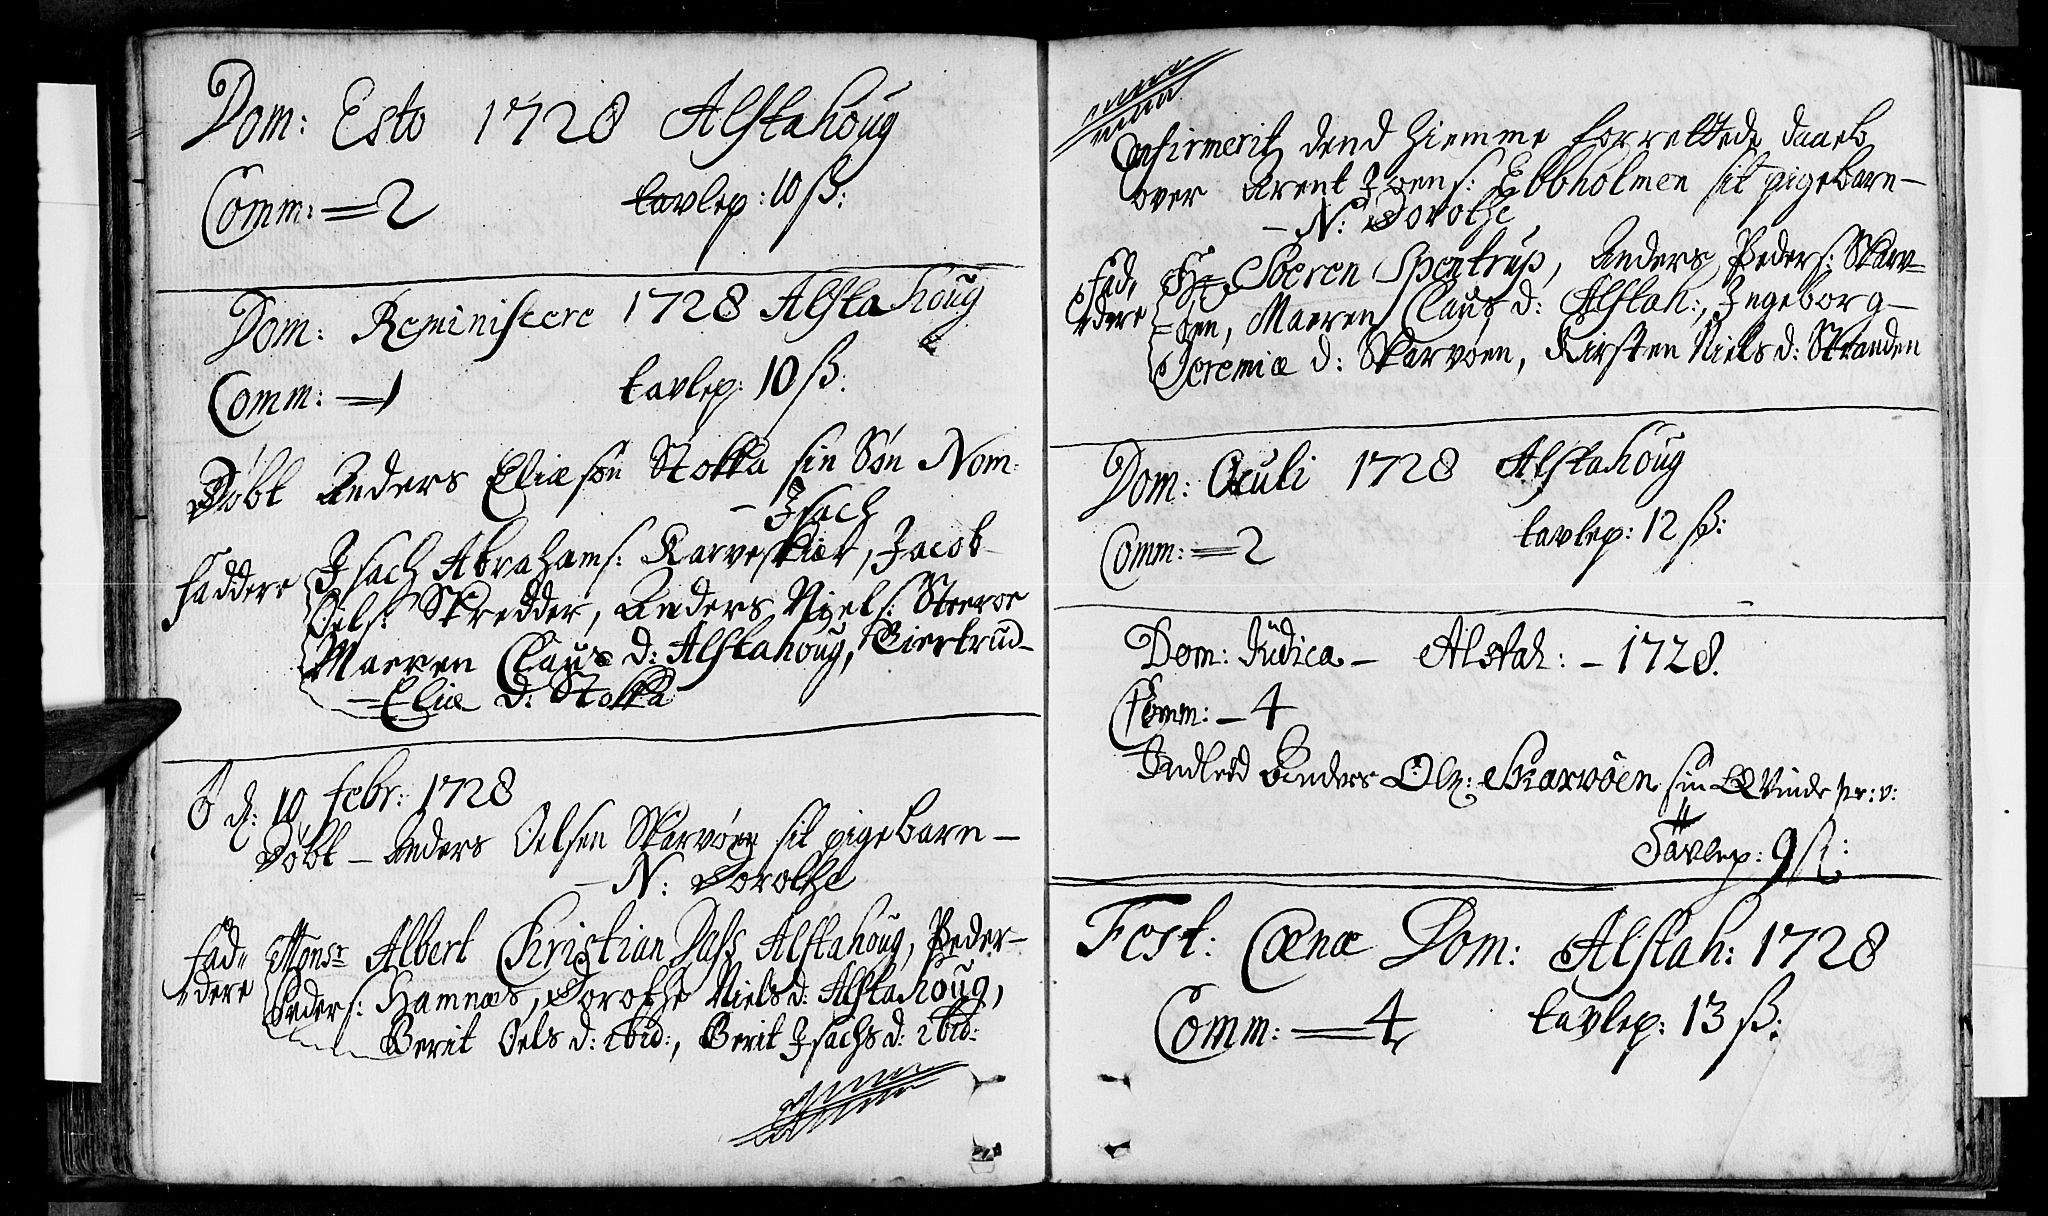 Dom: Esto 1728 Alstahoug
Comm: = 2 tavlep: 10 ß:
Dom: Reminiscere 1728 Alstahoug
Comm: — 1 tavlep: 10 ß:
Døbt Anders Eliæsøn Stokka sin Søn Nom:
– Isach
Faddere Isach Abrahams: Karveskiær, Jacob
Oels: Skredder, Anders Niels:
Maeren Claus d: Alstahoug, Giertrud–
= Eliæ d: Stokka
d: 10 febr: 1728
Døbt – Anders Oelsen Skarvøen sit pigebarn –
– N: Dorothe
Fad= Monsr Albert Christian Dass Alstahoug, Peder–
=dere Peders: Hamnæs, Dorothe Niels d: Alstahoug,
Berit Oels d: ibid:, Berit Isachs d: ibid:
Confirmerit dend hiemme forrettede daaeb
over Arent Joens: Ebbholmen sit pigebarn –
– N: Dorothe
Fad= Hr Søeren Spentrup, Anders Peders: Skarv=
=dere =øen, Maeren Claus d: Alstah:, Ingeborg –
Jeremiæ d: Skarvøen, Kirsten Niels d: Stranden
Dom: Oculi 1728 Alstahoug
Comm: = 2 tavlep: 12 ß:
Dom: Judica – Alstah: – 1728.
Comm: – 4
Indleed Anders Ols: Skarvøen sin Qvinde
Tavlep: 9 ß:
Fest: Coenæ Dom: Alstah: 1728
Comm: — 4 tavlep: 13 ß: